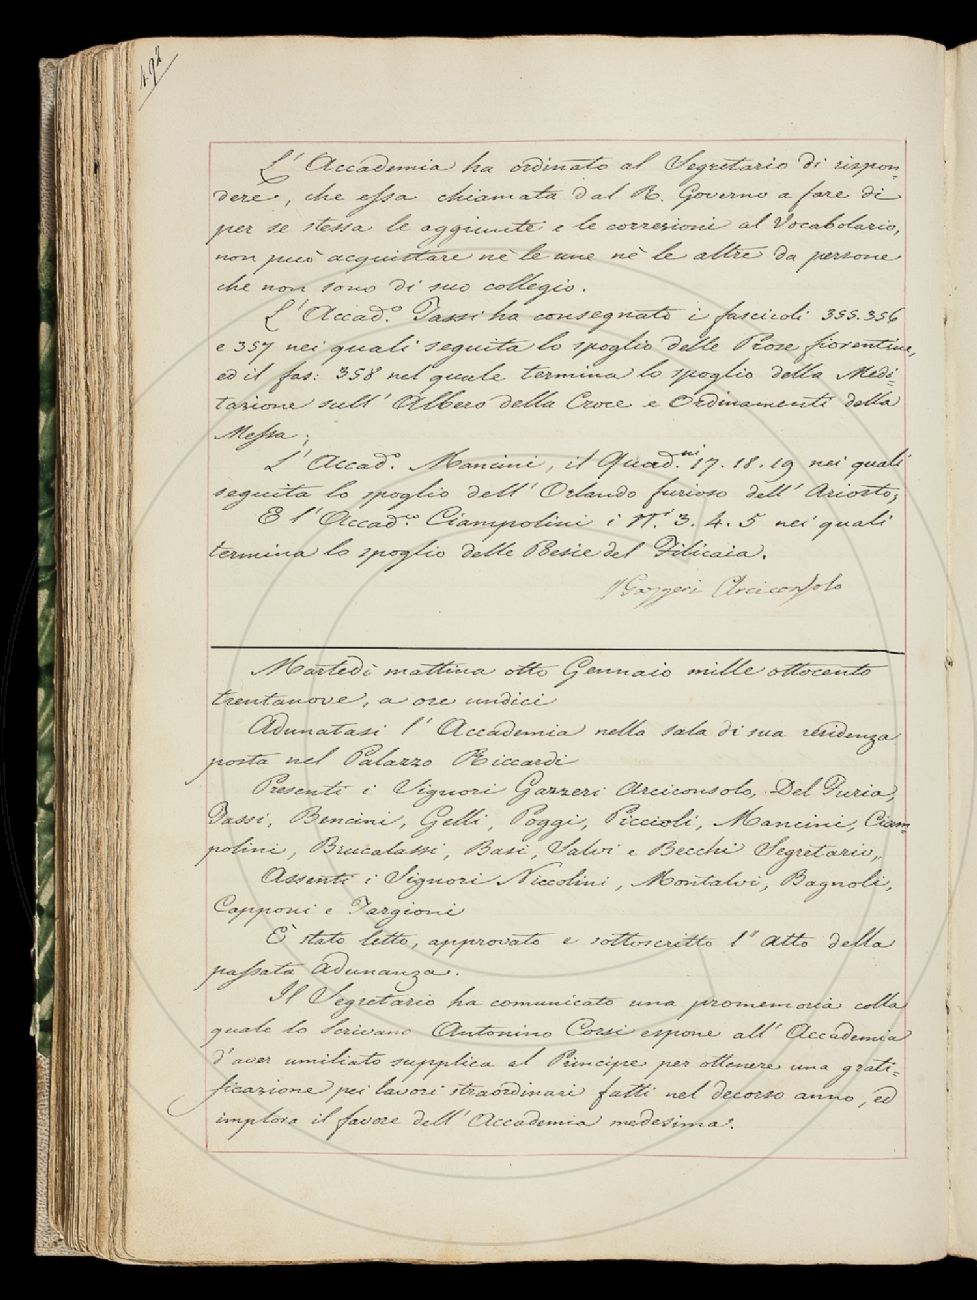 492
L' Accademia ha ordinato al Segretario di rispon=
dere, che essa chiamata dal R. Governo a fare di
per se stessa le aggiunte e le correzioni al Vocabolario,
non può acquistare nè le une nè le altre da persone
che non sono di suo collegio.
L' Accad.º Tassi ha consegnato i fascicoli 355. 356
e 357 nei quali seguita lo spoglio delle Prose fiorentine,
ed il fas: 358 nel quale termina lo spoglio della Medi=
tazione sull' Albero della Croce e Ordinamenti della
Messa;
L' Accad.º Mancini, il Quad.ni 17. 18. 19 nei quali
seguita lo spoglio dell' Orlando furioso dell' Ariosto;
E l' Accad.co Ciampolini i N.i 3. 4. 5 nei quali
termina lo spoglio delle Poesie del Filicaia.
Gazzeri Arciconsolo
Martedì mattina otto Gennaio mille ottocento
trentanove, a ore undici
Adunatasi l' Accademia nella sala di sua residenza
posta nel Palazzo Riccardi
Presenti i Signori Gazzeri Arciconsolo, Del Furia,
Tassi, Bencini, Gelli, Poggi, Piccioli, Mancini, Ciam=
polini, Brucalassi, Basi, Salvi e Becchi Segretario,
Assenti i Signori Niccolini, Montalvi, Bagnoli,
Capponi e Targioni
È stato letto, approvato e sottoscritto l' Atto della
passata Adunanza.
Il Segretario ha comunicato una promemoria colla
quale lo Scrivano Antonino Corsi espone all' Accademia
d'aver umiliato supplica al Principe per ottenere una grati=
ficazione pei lavori straordinari fatti nel decorso anno, ed
implora il favore dell' Accademia medesima.